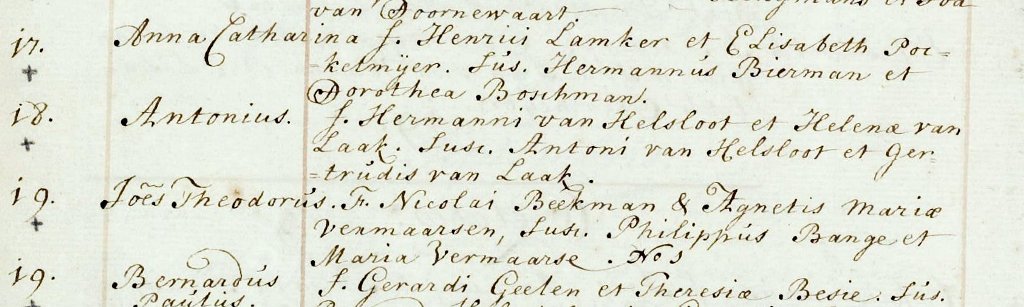 van Doornewaart.
17. Anna Catharina f. Henrici Lamker et Elisabeth Poc-
+ -kelmijer. Sus. Hermannus Bierman et
Dorothea Boschman.
18. Antonius. f. Hermanni van Helsloot et Helenæ van
+ Laak. Susc. Antoni van Helsloot et Ger=
=trudis van Laak.
19. Joēs Theodorus. F. Nicolai Beekman & Agnetis Mariæ
+ Vermaarsen, Susc. Philippus Bange et
Maria Vermaarse. No 1
19. Bernardus f. Gerardi Geelen et Theresiæ Besie. Sus.
Paulus.